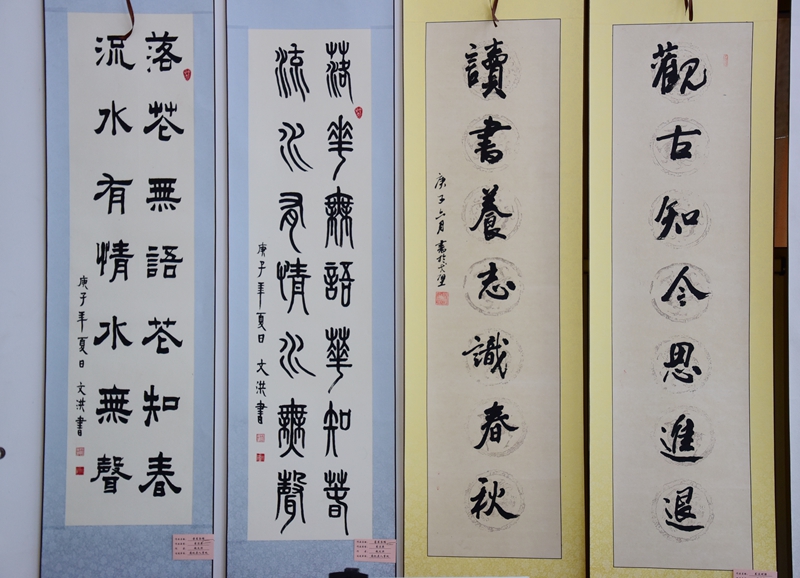 觀古知今思進退
讀書養志識春秋
庚子六月書於
落華無語華知春
流水有情水無聲
庚子年夏日文洪書
落花無語花知春
流水有情水無聲
庚子年夏日文洪書